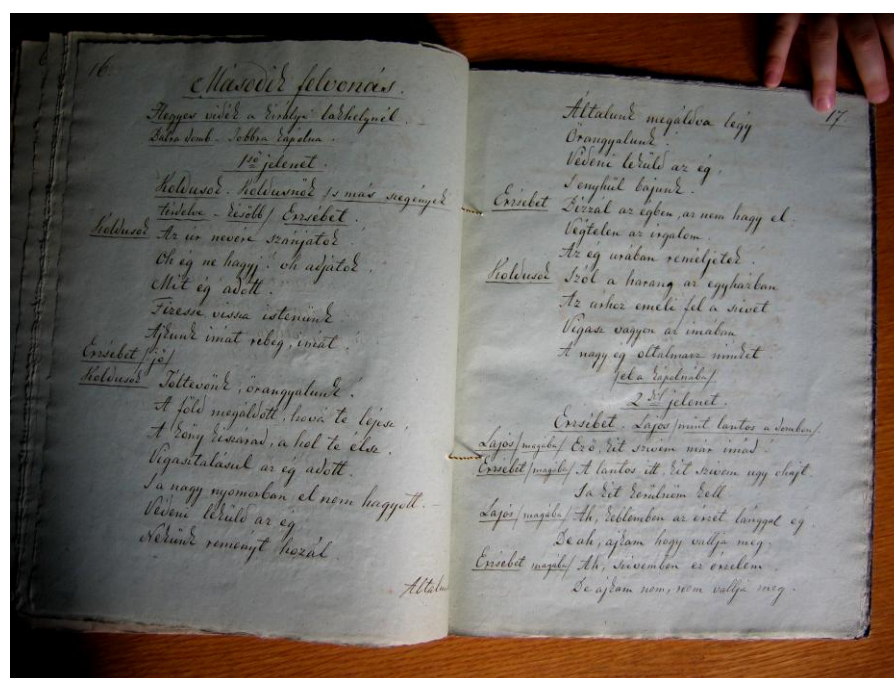 16
Második felvonás.
Hegyes vidék a királyi lakhelynél.
Balra domb. Jobbra kápolna.
1ső jelenet.
Koldusok. Koldusnők /s más szegények
térdelve – később/ Erzsébet.
Koldusok Az úr nevére szánjátok
Oh ég ne hagyj! oh adjátok
Mit ég adott.
Fizesse vissza istenünk
Ajkunk imát rebeg, imát!
Erzsébet /jő/
Koldusok Jóltevőnk, őrangyalunk!
A föld megáldott, hová te lépsz,
A köny kiszárad, a hol te élsz.
Vigasztalásul az ég adott.
S a nagy nyomorban el nem hagyott. –
Védeni leküld az ég
Nekünk reményt hozál.
Általunk
17
Általunk megáldva légy
Őrangyalunk!
Védeni leküld az ég,
S enyhül bájunk.
Erzsébet Bizzál az egben, az nem hagy el.
Végtelen az irgalom.
Az ég urában reméljetek!
Koldusok Szól a harang az egyházban
Az úrhoz emeli fel a szivet
Vigasz vagyon az imában
A nagy ég oltalmaz minket
/el a kápolnába/
2dik jelenet.
Erzsébet. Lajos /mint lantos a dombon/.
Lajos /magába/ Ez ő, kit szivem már imád!
Erzsébet /magába/ A lantos itt, kit szivem ugy ohajt.
S a kit kerülnöm kell
Lajos /magába/ Ah, keblemben az érzet lánggal ég.
De ah, ajkam hogy vallja meg.
Erzsébet magába/ Ah, szivemben ez érzelem.
De ajkam nem, nem vallja meg.